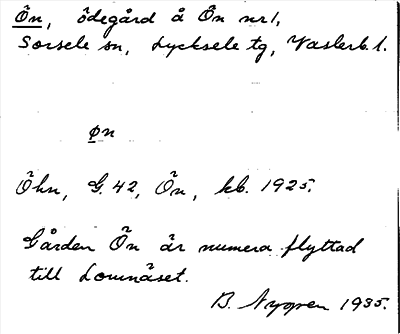 Ön, ödegård å Ön nr 1,
Sorsele sn, Lycksele tg, Västerb. l.
øn
Öhn, G. 42, Ön, kb. 1925.
Gården Ön är numera flyttad
till Lomnäset.
B. Nygren 1935.